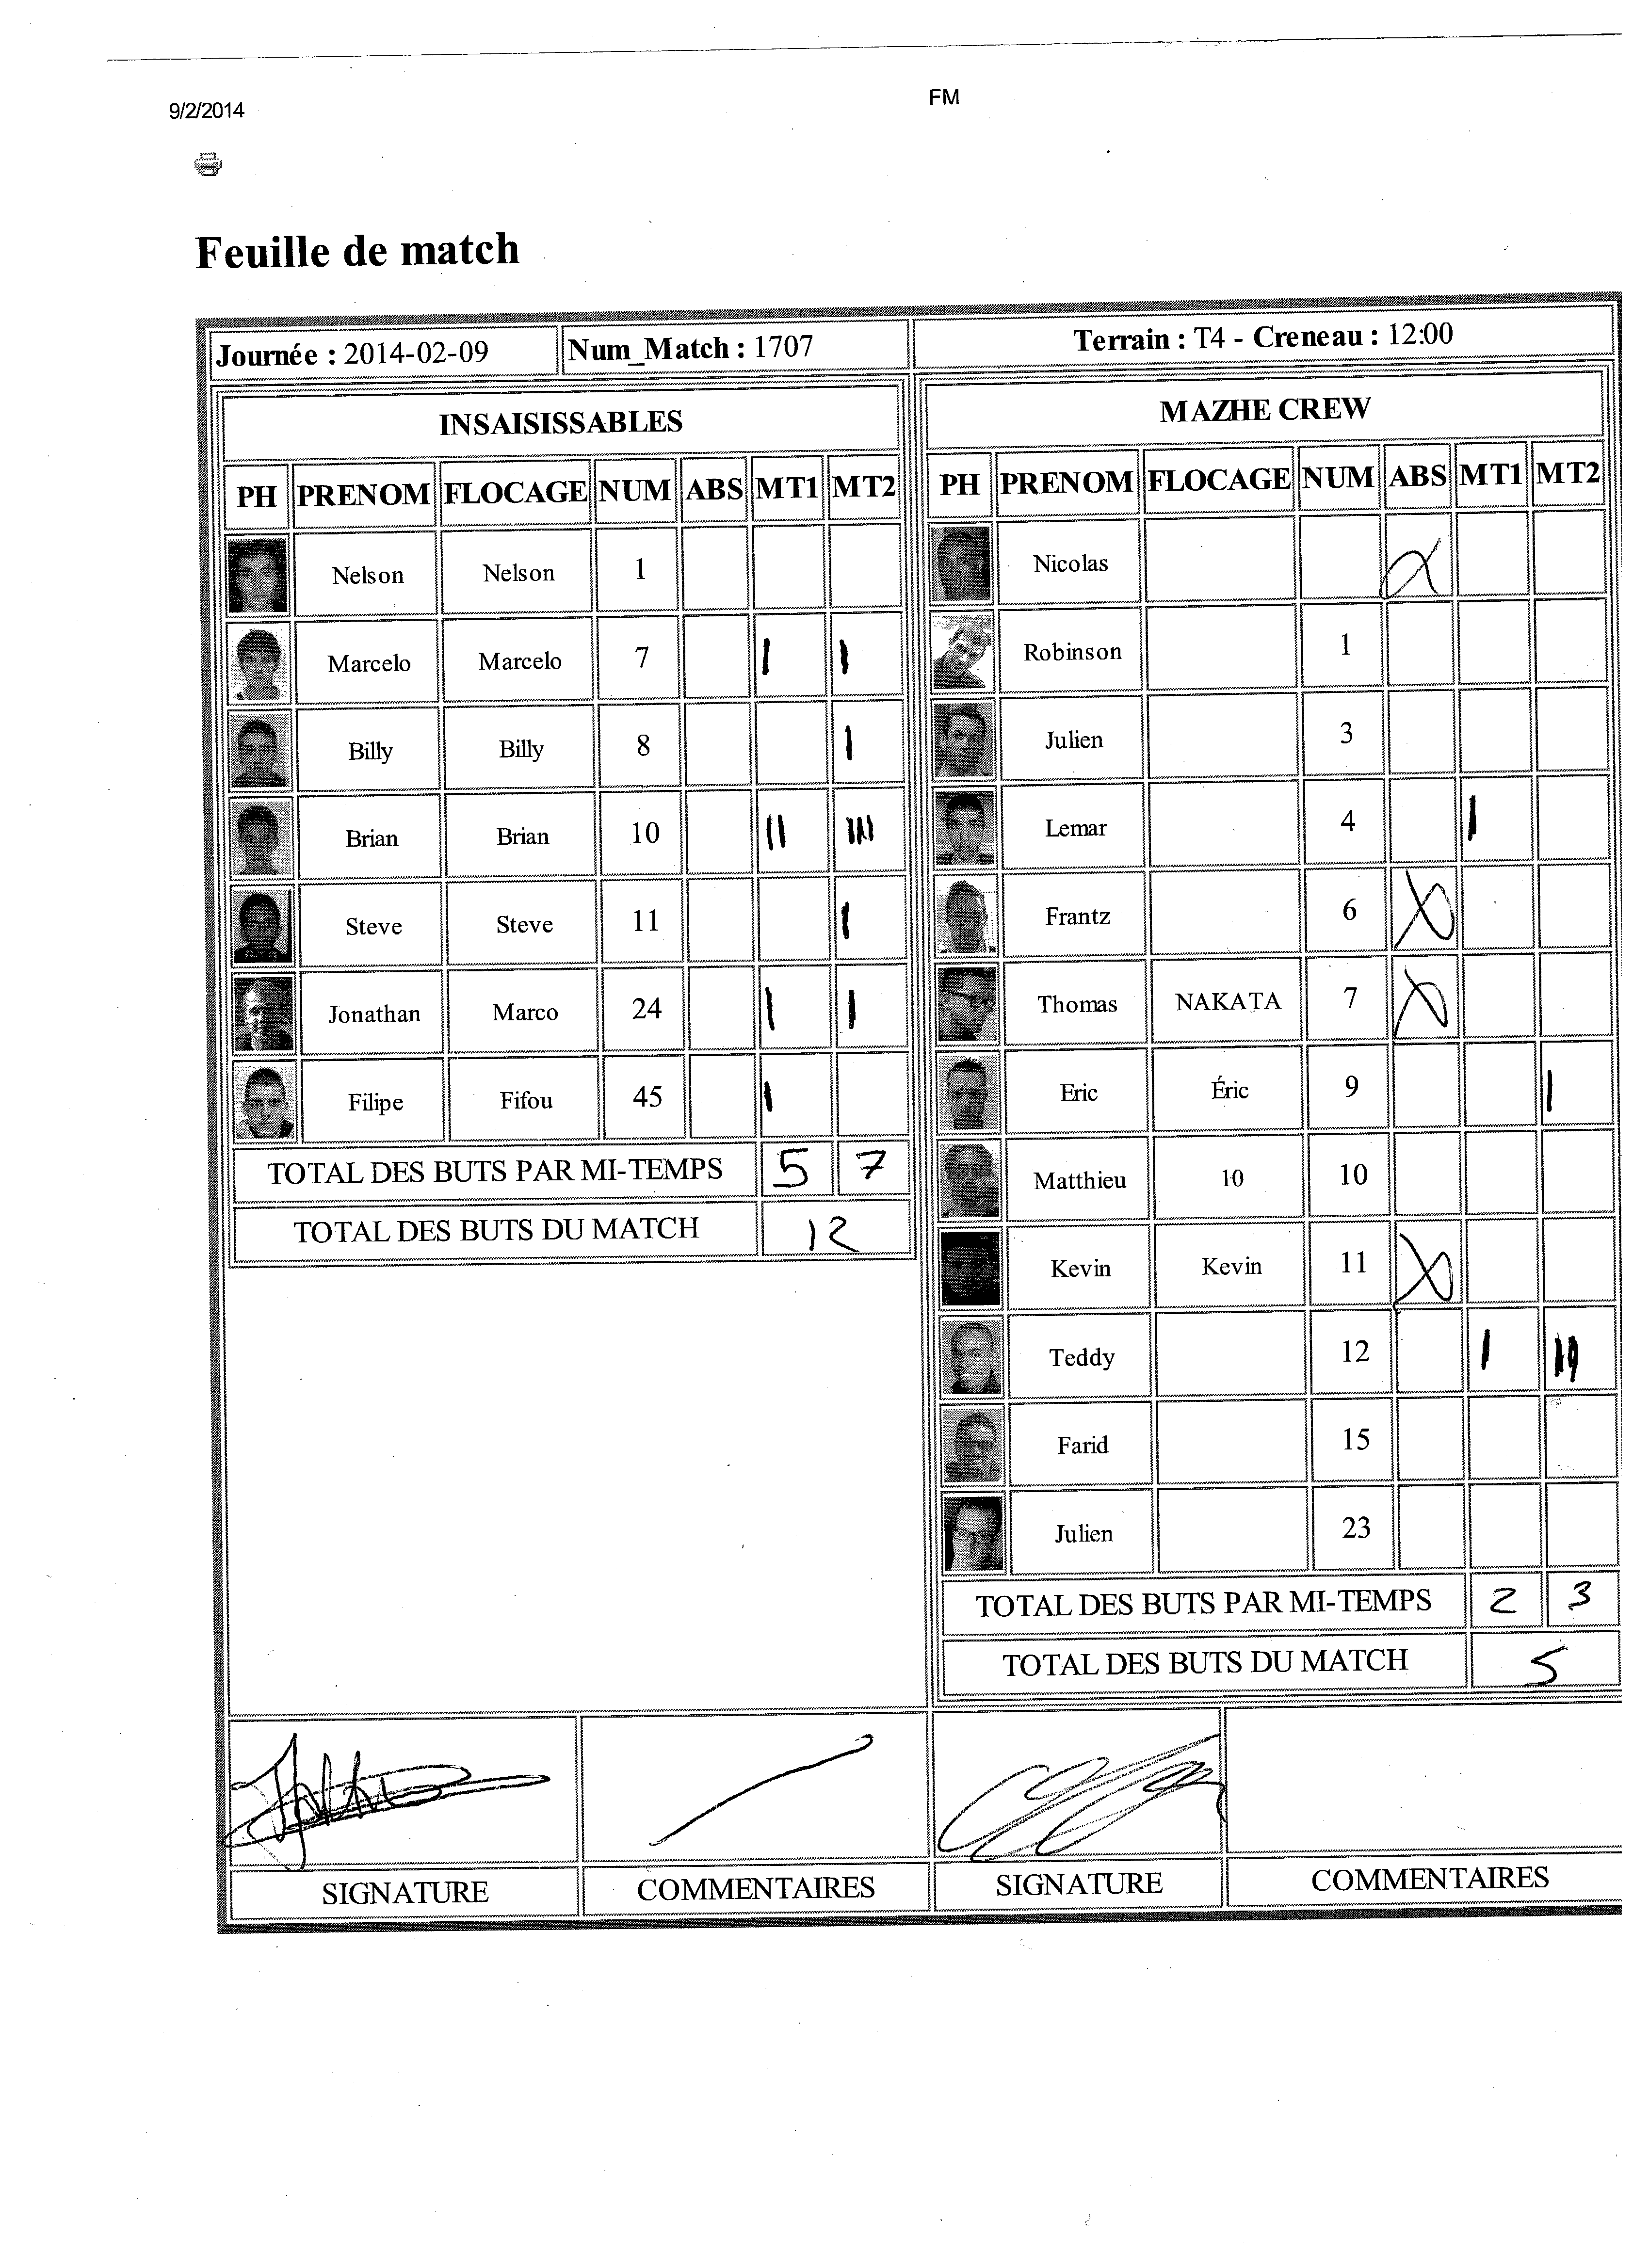 9/2/2014
FM
Feuille de match
Journée : 2014-02-09 Num_Match : 1707 Terrain : T4 - Creneau : 12:00
INSAISISSABLES
PH PRENOM FLOCAGE NUM ABS MT1 MT2
Nelson Nelson 1
Marcelo Marcelo 7 I I
Billy Billy 8 I
Brian Brian 10 II IIII
Steve Steve 11 I
Jonathan Marco 24 I I
Filipe Fifou 45 I
TOTAL DES BUTS PAR MI-TEMPS 5 7
TOTAL DES BUTS DU MATCH 12
MAZHE CREW
PH PRENOM FLOCAGE NUM ABS MT1 MT2
Nicolas X
Robinson 1
Julien 3
Lemar 4 I
Frantz 6 X
Thomas NAKATA 7 X
Eric Éric 9 I
Matthieu 10 10
Kevin Kevin 11 X
Teddy 12 I
Farid 15
Julien 23
TOTAL DES BUTS PAR MI-TEMPS 2 3
TOTAL DES BUTS DU MATCH 5
SIGNATURE COMMENTAIRES SIGNATURE COMMENTAIRES